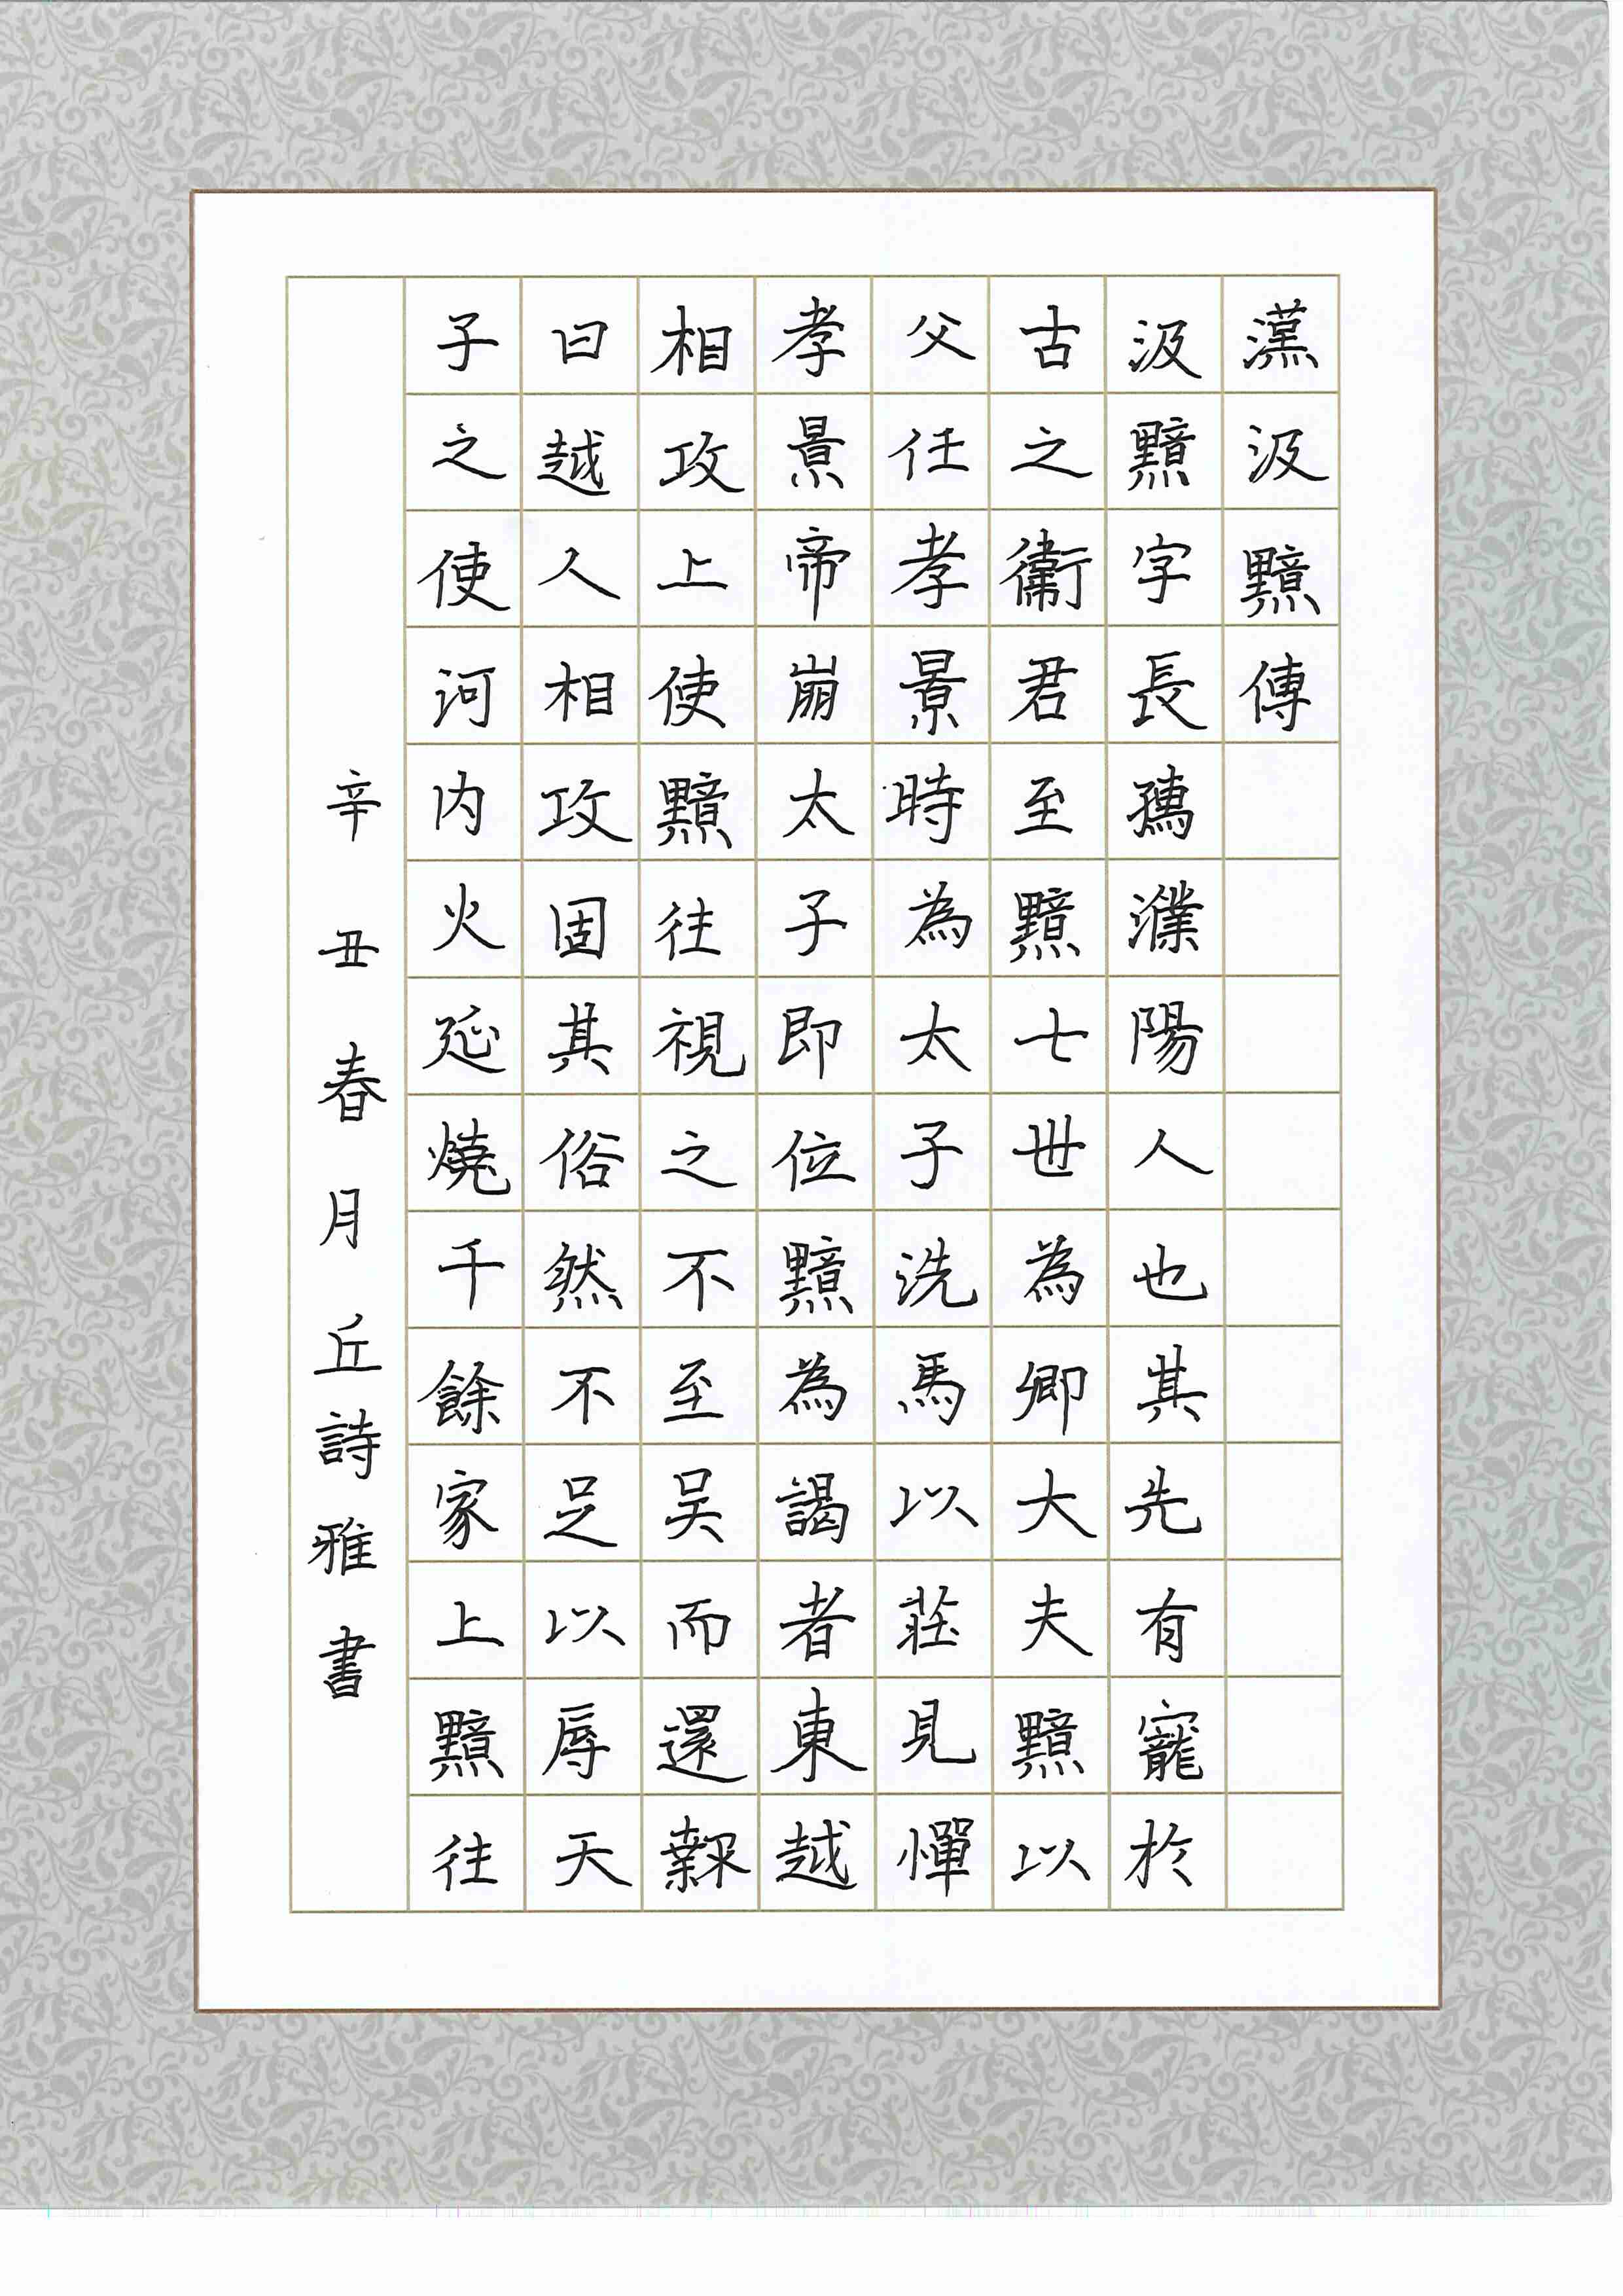 漢汲黯傳
汲黯字長孺濮陽人也其先有寵於
古之衛君至黯七世為卿大夫黯以
父任孝景時為太子洗馬以莊見憚
孝景帝崩太子即位黯為謁者東越
相攻上使黯往視之不至吳而還報
曰越人相攻固其俗然不足以辱天
子之使河內火延燒千餘家上黯往
辛丑春月丘詩雅書